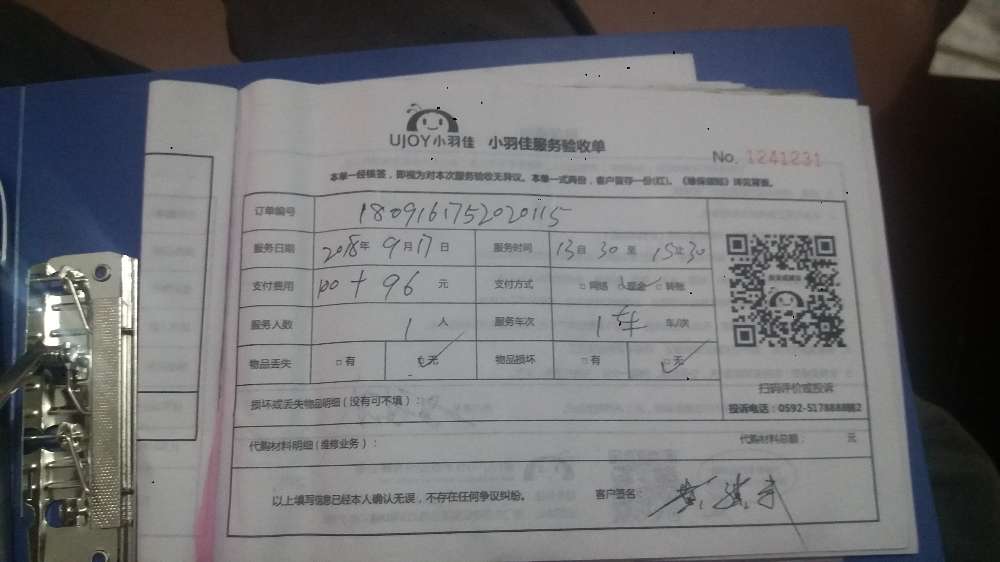 UJOY小羽佳 小羽佳服务验收单
No. 1241231
本单一经核签，即视为对本次服务验收无异议。本单一式两份，客户留存一份(红)。《维保须知》详见背面。
订单编号 1809161752020115
服务日期 2018年 9月17日 服务时间 13点30至15点30
支付费用 100+96 元 支付方式 □网络 □现金 □转账
服务人数 1 人 服务车次 1车 车/次
物品丢失 □有 □无 物品损坏 □有 □无
扫码评价或投诉
损坏或丢失物品明细(没有可不填)：
投诉电话：0592-5178888转2
代购材料明细(维修业务)： 代购材料总额： 元
以上填写信息已经本人确认无误，不存在任何争议纠纷。 客户签名：